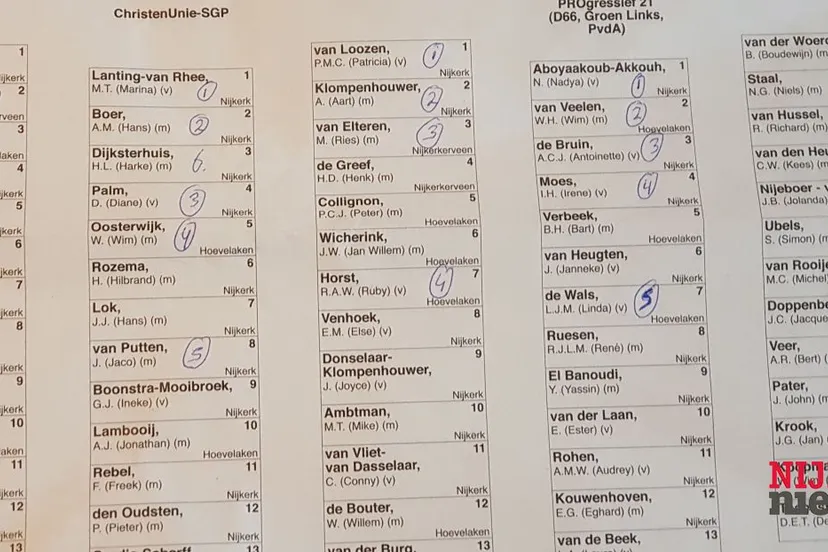 1
Nijkerk
2
erveen
3
elaken
4
jkerk
5
jkerk
6
7
8
9
10
aken
11
jkerk
12
jkerk
13
ChristenUnie-SGP
Lanting-van Rhee, 1
M.T. (Marina) (v) 1
Nijkerk
Boer, 2
A.M. (Hans) (m) 2
Nijkerk
Dijksterhuis, 3
H.L. (Harke) (m) 6.
Nijkerk
Palm, 4
D. (Diane) (v) 3
Nijkerk
Oosterwijk, 5
W. (Wim) (m) 4
Hoevelaken
Rozema, 6
H. (Hilbrand) (m)
Nijkerk
Lok, 7
J.J. (Hans) (m)
Nijkerk
van Putten, 8
J. (Jaco) (m) 5
Nijkerk
Boonstra-Mooibroek, 9
G.J. (Ineke) (v)
Nijkerk
Lambooij, 10
A.J. (Jonathan) (m)
Hoevelaken
Rebel, 11
F. (Freek) (m)
Nijkerk
den Oudsten, 12
P. (Pieter) (m)
Nijkerk
13
van Loozen, 1
P.M.C. (Patricia) (v) 1
Nijkerk
Klompenhouwer, 2
A. (Aart) (m) 2
Nijkerk
van Elteren, 3
M. (Ries) (m) 3
Nijkerkerveen
de Greef, 4
H.D. (Henk) (m)
Nijkerkerveen
Collignon, 5
P.C.J. (Peter) (m)
Hoevelaken
Wicherink, 6
J.W. (Jan Willem) (m)
Hoevelaken
Horst, 7
R.A.W. (Ruby) (v) 4
Hoevelaken
Venhoek, 8
E.M. (Else) (v)
Nijkerk
Donselaar- 9
Klompenhouwer,
J. (Joyce) (v)
Nijkerk
Ambtman, 10
M.T. (Mike) (m)
Nijkerk
van Vliet- 11
van Dasselaar,
C. (Conny) (v)
Nijkerk
de Bouter, 12
W. (Willem) (m)
Hoevelaken
van der Burg, 13
PROgressief 21
(D66, Groen Links,
PvdA)
Aboyaakoub-Akkouh, 1
N. (Nadya) (v) 1
Nijkerk
van Veelen, 2
W.H. (Wim) (m) 2
Hoevelaken
de Bruin, 3
A.C.J. (Antoinette) (v) 3
Nijkerk
Moes, 4
I.H. (Irene) (v) 4
Nijkerk
Verbeek, 5
B.H. (Bart) (m)
Hoevelaken
van Heugten, 6
J. (Janneke) (v)
Nijkerk
de Wals, 7
L.J.M. (Linda) (v) 5
Hoevelaken
Ruesen, 8
R.J.L.M. (René) (m)
Nijkerk
El Banoudi, 9
Y. (Yassin) (m)
Nijkerk
van der Laan, 10
E. (Ester) (v)
Nijkerk
Rohen, 11
A.M.W. (Audrey) (v)
Nijkerk
Kouwenhoven, 12
E.G. (Eghard) (m)
Nijkerk
van de Beek, 13
van der Woerd
B. (Boudewijn) (m
Staal,
N.G. (Niels) (m)
van Hussel,
R. (Richard) (m)
van den Heu
C.W. (Kees) (m)
Nijeboer - v
J.B. (Jolanda)
Ubels,
S. (Simon) (m
van Rooije
M.C. (Michel
Doppenbe
J.C. (Jacque
Veer,
A.R. (Bert) (
Pater,
J. (John) (m
Krook,
J.G. (Jan)
D.E.T. (De
NIJ
nie